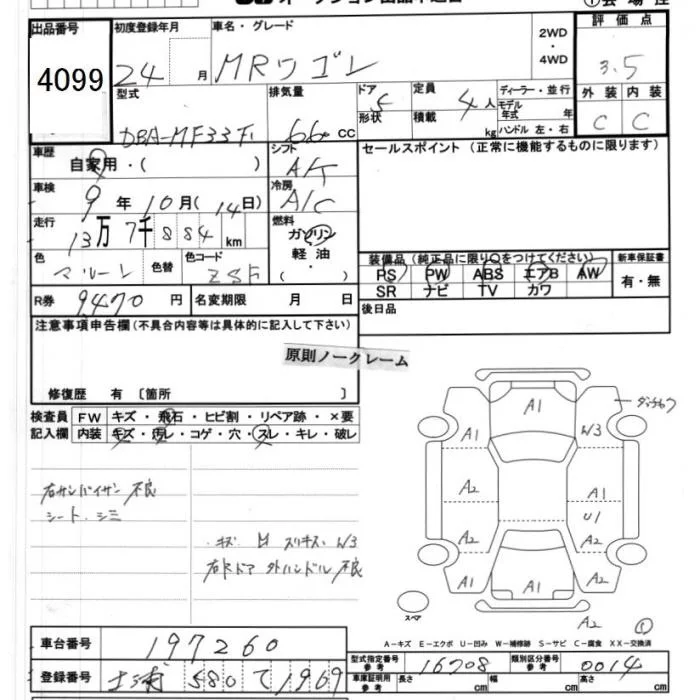 出品番号 初度登録年月 車名・グレード 2WD・4WD 評価点
4099 24 月 MRワゴン 3.5
型式 排気量 ドア 定員 ディーラー・並行 外装 内装
DBA-MF33 660 cc 5 4人 モデル年式 年 C C
形状 積載 kg ハンドル 左・右
車歴 シフト セールスポイント (正常に機能するものに限ります)
自家用・( ) A/T
車検 冷房
9年 10月(14日) A/C
走行 燃料
13万 7千 884 km ガソリン 軽油・( )
色 色替 色コード 装備品 (純正品に限り○をつけてください) 新車保証書
マルーン ZSF PS PW ABS エアB AW 有・無
SR ナビ TV カワ
R券 9470 円 名変期限 月 日 後日品
注意事項申告欄(不具合内容等は具体的に記入して下さい)
原則ノークレーム
修復歴 有 〔箇所 〕
検査員 FW キズ・飛石・ヒビ割・リペア跡・×要
記入欄 内装 キズ・汚レ・コゲ・穴・スレ・キレ・破レ
A1
A1 W3
右サンバイザー不良
シート シミ
A2 A1
U1
キズ 凹 スリキズ W3
A2 A2
右Rドア外ハンドル不良
A1 A1 A1
スペア
A2 ①
A-キズ E-エクボ U-凹み W-補修跡 S-サビ C-腐食 XX-交換済
車台番号 197260
型式指定番号 参考 16708 類別区分番号 参考 0014
登録番号 580 て 1969
車庫証明用 参考 長さ cm 幅 cm 高さ cm